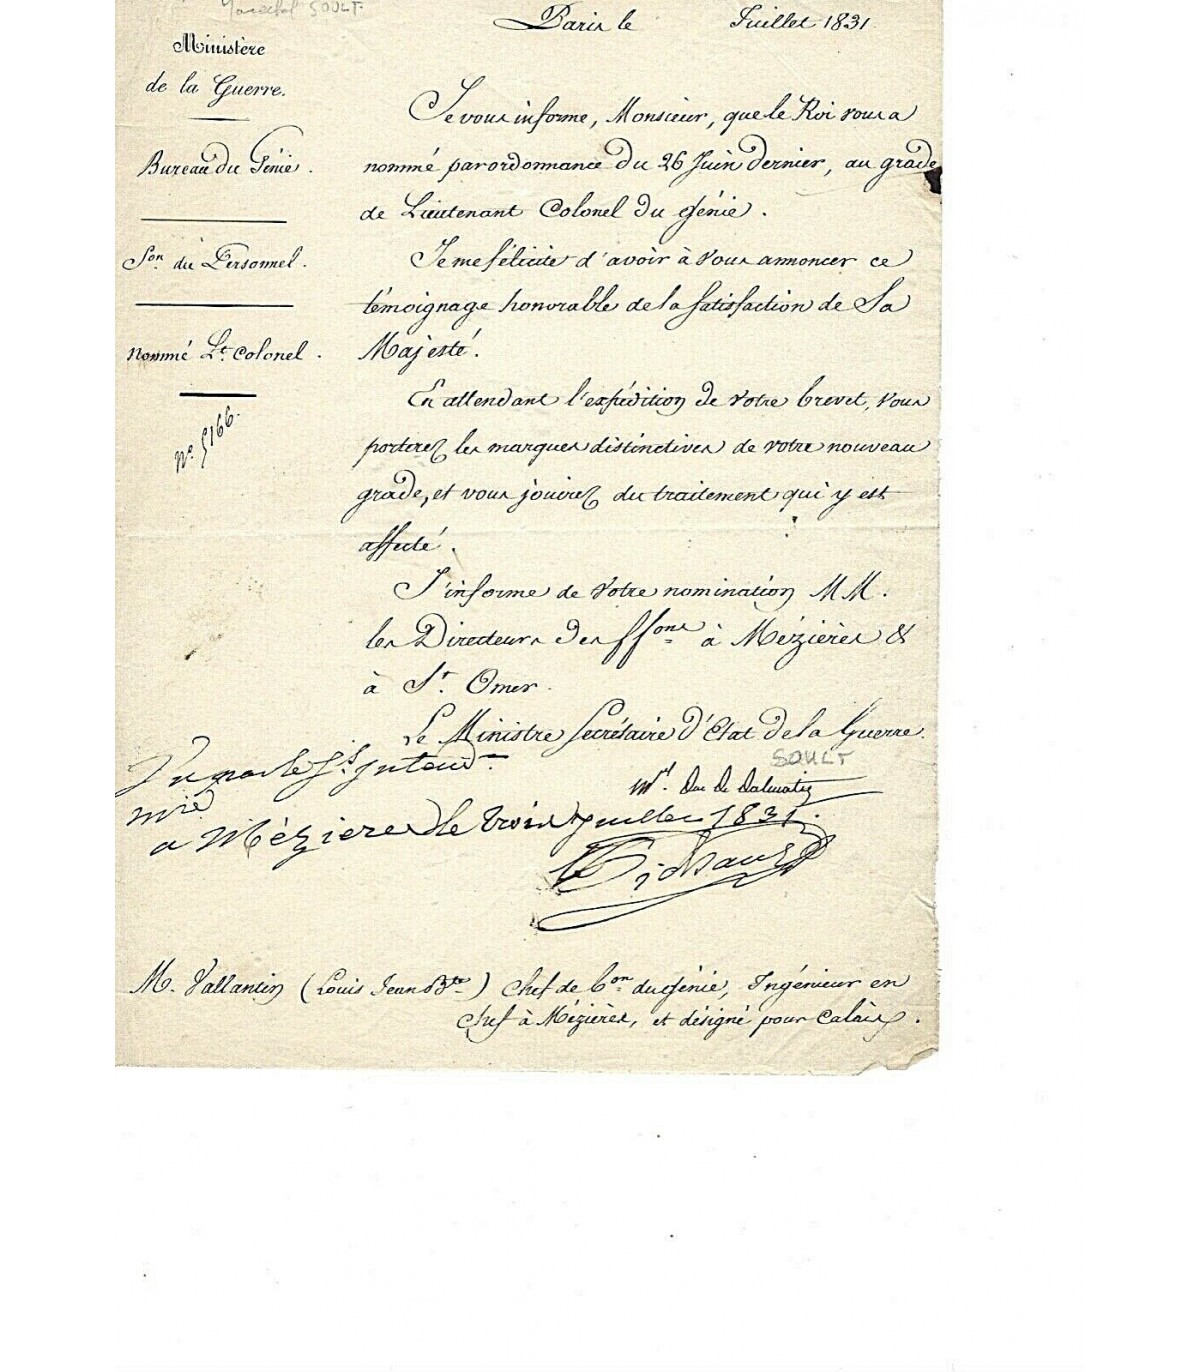 Maréchal SOULT.
Paris le Juillet 1831
Ministère
de la Guerre.
Bureau du Génie.
Son. du Personnel.
Nommé Lt. Colonel.
No. 5166.
Je vous informe, Monsieur, que le Roi vous a
nommé par ordonnance du 26 Juin dernier, au grade
de Lieutenant Colonel du génie.
Je me félicite d'avoir à vous annoncer ce
témoignage honorable de la satisfaction de Sa
Majesté.
En attendant l'expédition de votre brevet, vous
porterez les marques distinctives de votre nouveau
grade, et vous jouirez du traitement qui y est
affecté.
J'informe de votre nomination MM.
les Directeurs des ffons à Mézières &
à St. Omer.
Le Ministre Secrétaire d'Etat de la Guerre.
SOULT
Mal. Duc de Dalmatie
Vu par le Ss. Intend.
mre
a Mézieres le trois juillet 1831.
M. Vallantin (Louis Jean Bte) Chef de Bon. du Génie, Ingénieur en
Chef à Mézières, et désigné pour Calais.